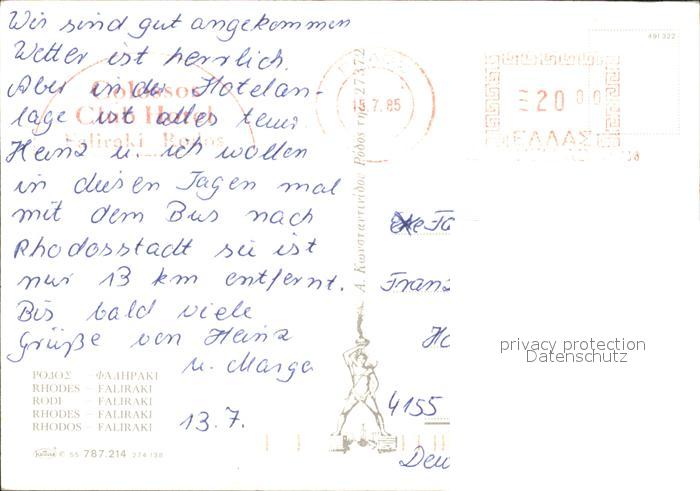 Wir sind gut angekommen
Wetter ist herrlich.
Aber in der Hotelan-
lage ist alles teuer
Heinz u. ich wollen
in diesen Tagen mal
mit dem Bus nach
Rhodosstadt sie ist
nur 13 km entfernt.
Bis bald viele
Grüße von Heinz
u. Marga
13.7.
Colossos
Club Hotel
Faliraki Rodos
ΡΟΔΟΣ – ΦΑΛΗΡΑΚΙ
RHODES – FALIRAKI
RODI – FALIRAKI
RHODES – FALIRAKI
RHODOS – FALIRAKI
© 55 787.214 274 138
Α. Κωνσταντινίδης Ρόδος τηλ. 27372
15.7.85
20 00
ΕΛΛΑΣ
491 322
38
Fa
Franz
Ho
4155
Deu
privacy protection
Datenschutz